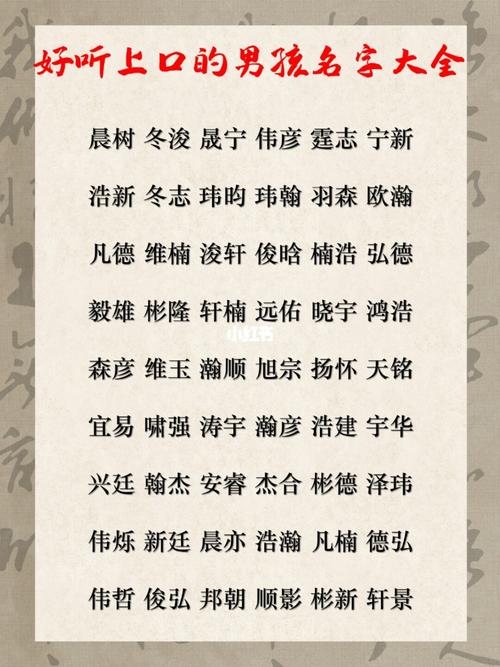 好听上口的男孩名字大全
晨树 冬浚 晟宁 伟彦 霆志 宁新
浩新 冬志 玮昀 玮翰 羽森 欧瀚
凡德 维楠 浚轩 俊晗 楠浩 弘德
毅雄 彬隆 轩楠 远佑 晓宇 鸿浩
小红书
森彦 维玉 瀚顺 旭宗 扬怀 天铭
宜易 啸强 涛宇 瀚彦 浩建 宇华
兴廷 翰杰 安睿 杰合 彬德 泽玮
伟烁 新廷 晨亦 浩瀚 凡楠 德弘
伟哲 俊弘 邦朝 顺影 彬新 轩景